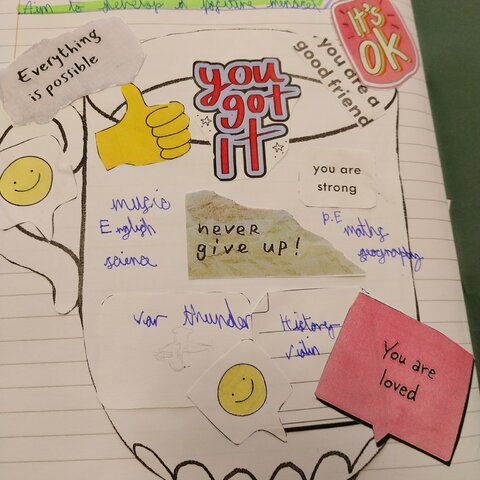 Aim to develop a positive mindset
Everything
is possible
you
got
it
It's
OK
you are a
good friend
you are
strong
music
English
science
never
give up!
P.E
maths
geography
war thunder
History
violin
You are
loved